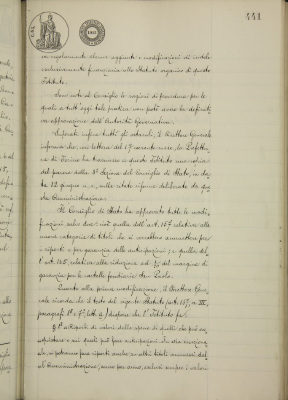 441
in regolamento alcune aggiunte e modificazioni di indole
esclusivamente finanziaria allo Statuto organico di questo
Istituto.
Sono note al Consiglio le ragioni di procedura per le
quali a tutt'oggi tale pratica non potè avere la definiti
va approvazione dell'Autorità Governativa.
infine tutti gli astanti, il Direttore Generale
informa che, con lettera del 19 corrente mese, la Prefettu
ra di Torino ha trasmesso a questo Istituto una copia
del parere della 3ª Sezione del Consiglio di Stato, in da
ta 12 giugno u. s., sulle citate riforme deliberate da que
sta Amministrazione.
Il Consiglio di Stato ha approvato tutte le modi
ficazioni salvo due: cioè quella dell'art. 157 relativa alla
nuova categoria di titoli che si vorrebbero ammettere per
i riporti e per garanzia delle anticipazioni; e quella del
l'art. 165 relativa alla riduzione ad 1/10 del margine di
garanzia per le cartelle fondiarie San Paolo.
Quanto alla prima modificazione, il Direttore Gene
rale ricorda che il testo del vigente Statuto (art. 157, n. III,
paragrafi 1º e 2º lett. a) dispone che l'Istituto fa:
di valori della specie di quelli che può ac
quistare e sui quali può fare anticipazioni. In via eccezional
le, si potranno fare riporti anche su altri titoli ammessi dal
l'Amministrazione; meno per armi, esclusi sempre i valori